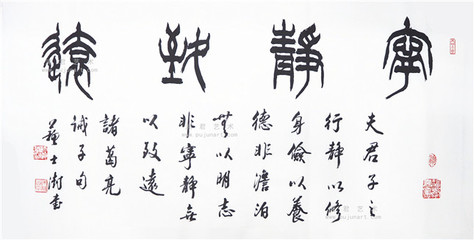 寧靜致遠
夫君子之
行靜以修
身儉以養
德非澹泊
無以明志
非寧靜無
以致遠
諸葛亮
誡子句
蘇士澍書